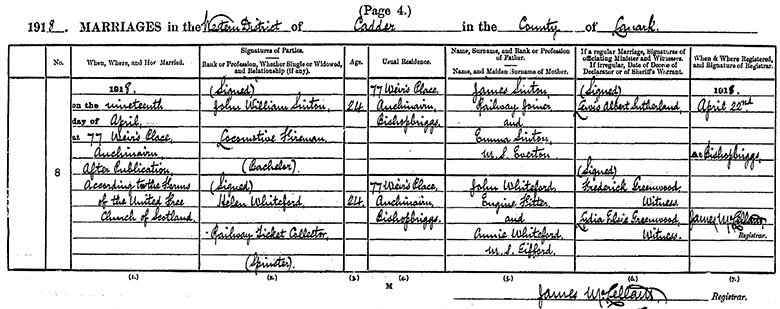 (Page 4.)
1918. MARRIAGES in the Western District of Cadder in the County of Lanark
No.
When, Where, and How Married.
Signatures of Parties.
Rank or Profession, Whether Single or Widowed, and Relationship (if any).
Age.
Usual Residence.
Name, Surname, and Rank or Profession of Father.
Name, and Maiden Surname of Mother.
If a regular Marriage, Signatures of officiating Minister and Witnesses.
If irregular, Date of Decree of Declarator or of Sheriff's Warrant.
When & Where Registered, and Signature of Registrar.
8
1918.
on the nineteenth
day of April,
at 77 Weir's Place,
Auchinairn
After Publication,
According to the Forms
of the United Free
Church of Scotland.
(Signed)
John William Sinton
Locomotive Fireman
(Bachelor)
(Signed)
Helen Whiteford
Railway Ticket Collector,
(Spinster).
24
24
77 Weir's Place,
Auchinairn
Bishopbriggs
77 Weir's Place,
Auchinairn
Bishopbriggs.
James Sinton
Railway Joiner
and
Emma Sinton
M.S. Everton
John Whiteford,
Engine Fitter
and
Annie Whiteford
M.S. Gifford.
(Signed)
Lewis Albert Sutherland,
(Signed)
Frederick Greenwood
Witness
Lydia Elsie Greenwood,
Witness.
1918.
April 22nd
at Bishopbriggs
James McLellan
Registrar.
(1.) (2.) (3.) (4.) (5.) (6.) (7.)
M
James McLellan Registrar.